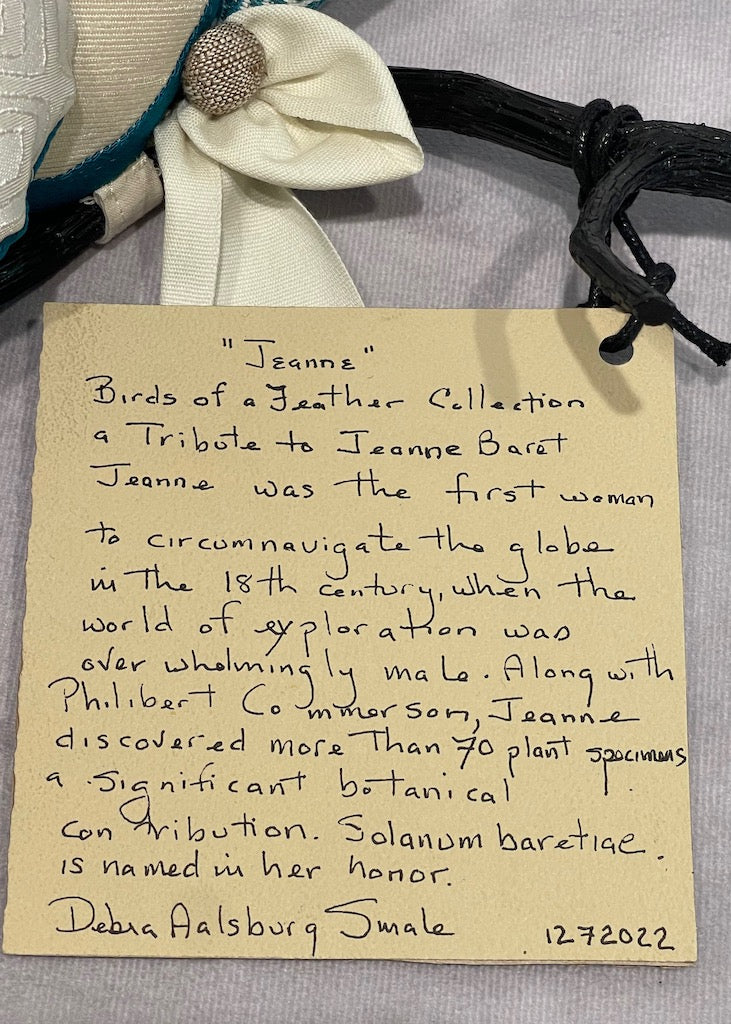 "Jeanne"
Birds of a Feather Collection
a Tribute to Jeanne Baret
Jeanne was the first woman
to circumnavigate the globe
in the 18th century, when the
world of exploration was
over whelmingly male. Along with
Philibert Commerson, Jeanne
discovered more than 70 plant specimens
a significant botanical
contribution. Solanum baretiae.
is named in her honor.
Debra Aalsburg Smale
1272022